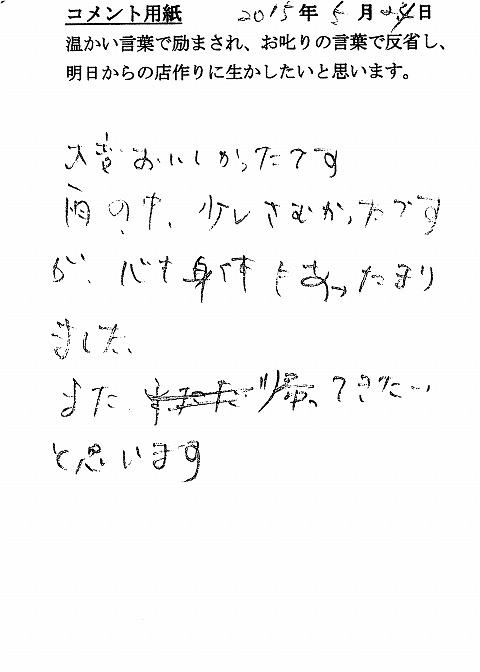 コメント用紙 2015年5月24日
温かい言葉で励まされ、お叱りの言葉で反省し、
明日からの店作りに生かしたいと思います。
大変おいしかったです
雨の中、少しさむかったです
が、心も身体もあったまり
ました、
また、帰ってきたい
と思います